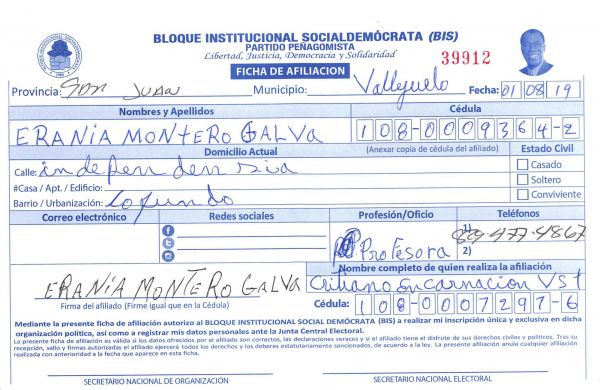 BLOQUE INSTITUCIONAL SOCIALDEMÓCRATA (BIS)
PARTIDO PEÑAGOMISTA
Libertad, Justicia, Democracia y Solidaridad
39912
FICHA DE AFILIACION
Provincia: Son Juan Municipio: Vallejuelo Fecha: 01 08 19
Nombres y Apellidos Cédula
ERANIA MONTERO GALVA 108-0009364-2
Domicilio Actual (Anexar copia de cédula del afiliado) Estado Civil
Calle: independensia Casado
#Casa / Apt. / Edificio: Soltero
Barrio / Urbanización: Conviviente
Correo electrónico Redes sociales Profesión/Oficio Teléfonos
Profesora 1) 829-477-4867
2)
Nombre completo de quien realiza la afiliación
ERANIA MONTERO GALVA Critiano Encarnacion
Firma del afiliado (Firme igual que en la Cédula) Cédula: 108-0007297-6
Mediante la presente ficha de afiliación autorizo al BLOQUE INSTITUCIONAL SOCIAL DEMÓCRATA (BIS) a realizar mi inscripción única y exclusiva en dicha
organización política, así como a registrar mis datos personales ante la Junta Central Electoral.
La presente ficha de afiliación es válida si los datos ofrecidos por el afiliado son correctos, las declaraciones veraces y si el afiliado tiene el disfrute de sus derechos civiles y políticos. Tras su
recepción, sello y firmas autorizadas el afiliado ejercerá todos los derechos y los deberes estatutariamente sancionados, de acuerdo a la ley. La presente afiliación anula cualquier afiliación
realizada con anterioridad a la fecha que aparece en esta ficha.
SECRETARIO NACIONAL DE ORGANIZACIÓN SECRETARIO NACIONAL ELECTORAL